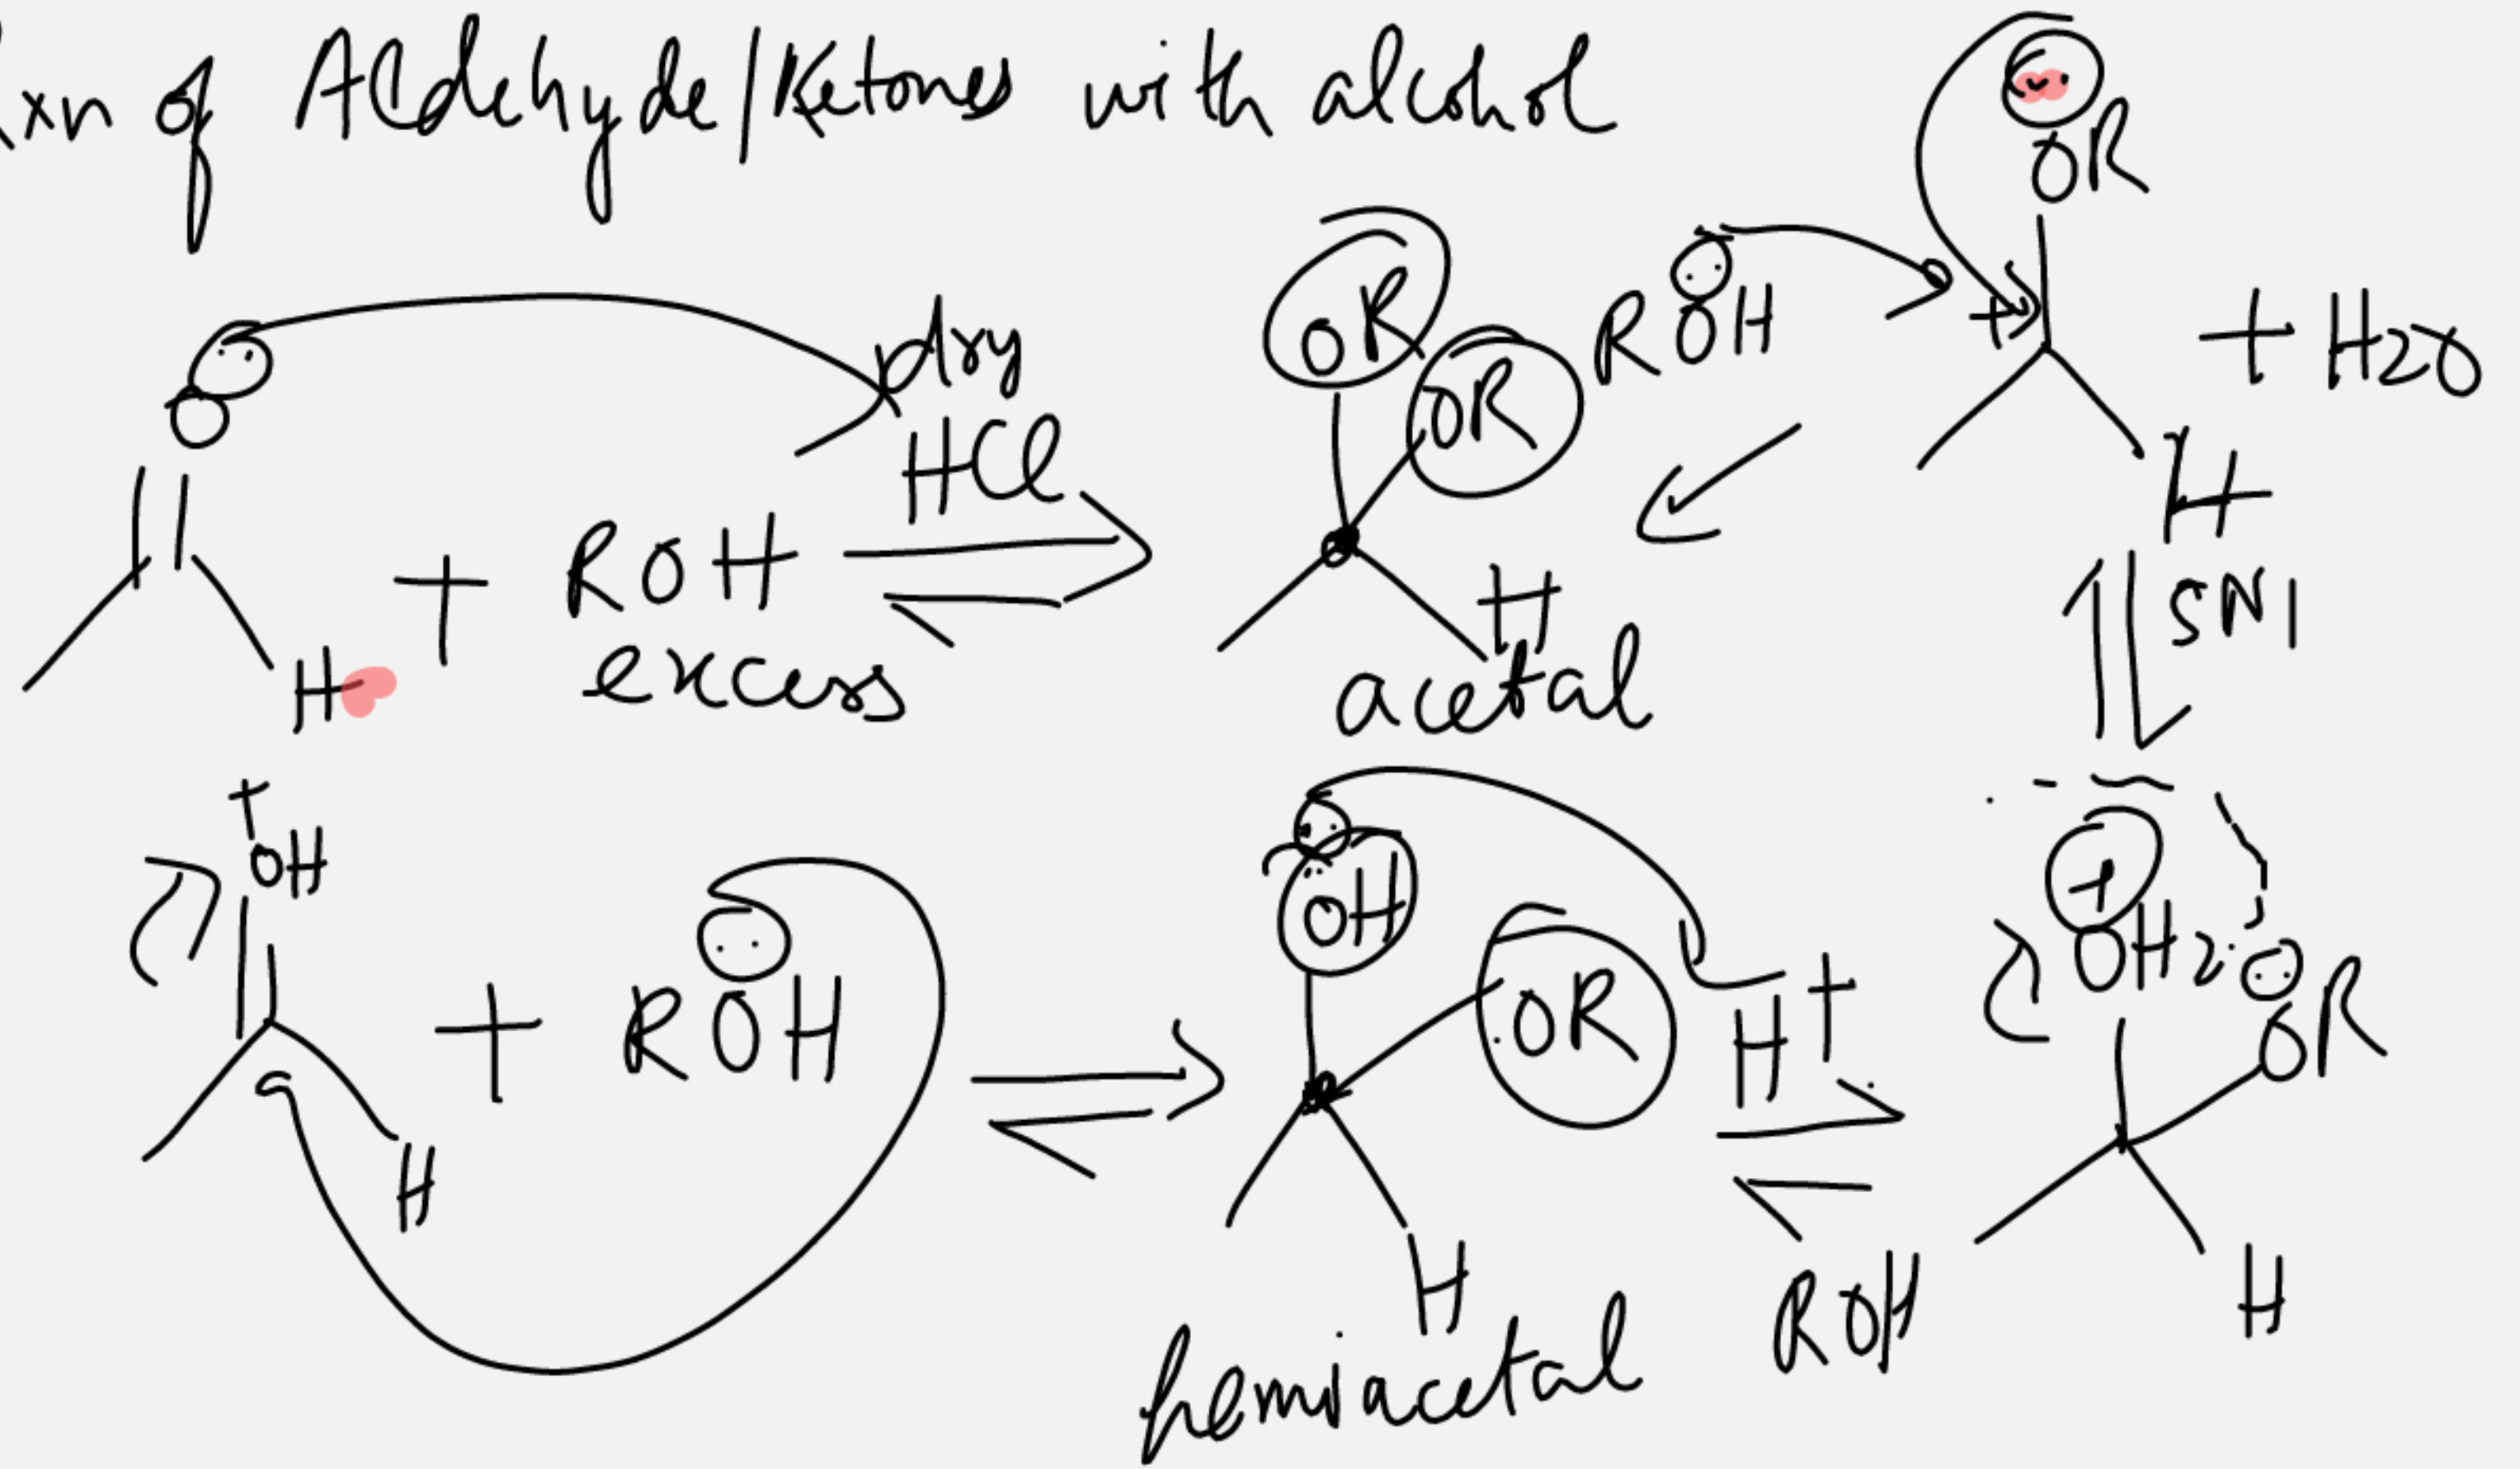 Rxn of Aldehyde/Ketones with alcohol
O
H
+ ROH
excess
dry
HCl
OR
OR
H
acetal
ROH
OR
+
H
+ H2O
SN1
+
OH
H
+ ROH
OH
OR
H
hemiacetal
H+
ROH
+
OH2
OR
H